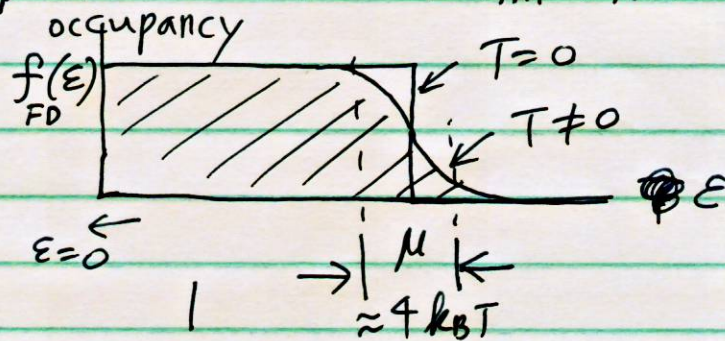 occupancy
f(ε)
FD
T=0
T≠0
ε
ε=0
μ
≈4 kBT